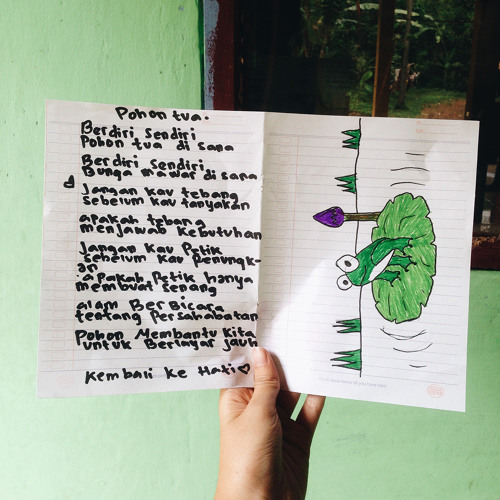 Pohon tua.
Berdiri sendiri
Pohon tua di sana
Berdiri sendiri
Bunga mawar di sana
Jangan kau tebang
sebelum kau tanyakan
apakah tebang
menjawab kebutuhan
Jangan kau Petik
sebelum kau
an
apakah Petik hanya
membuat senang
alam BerBicara
tentang Persahabatan
Pohon Membantu Kita
untuk Berlayar jauh
Kembali ke Hati